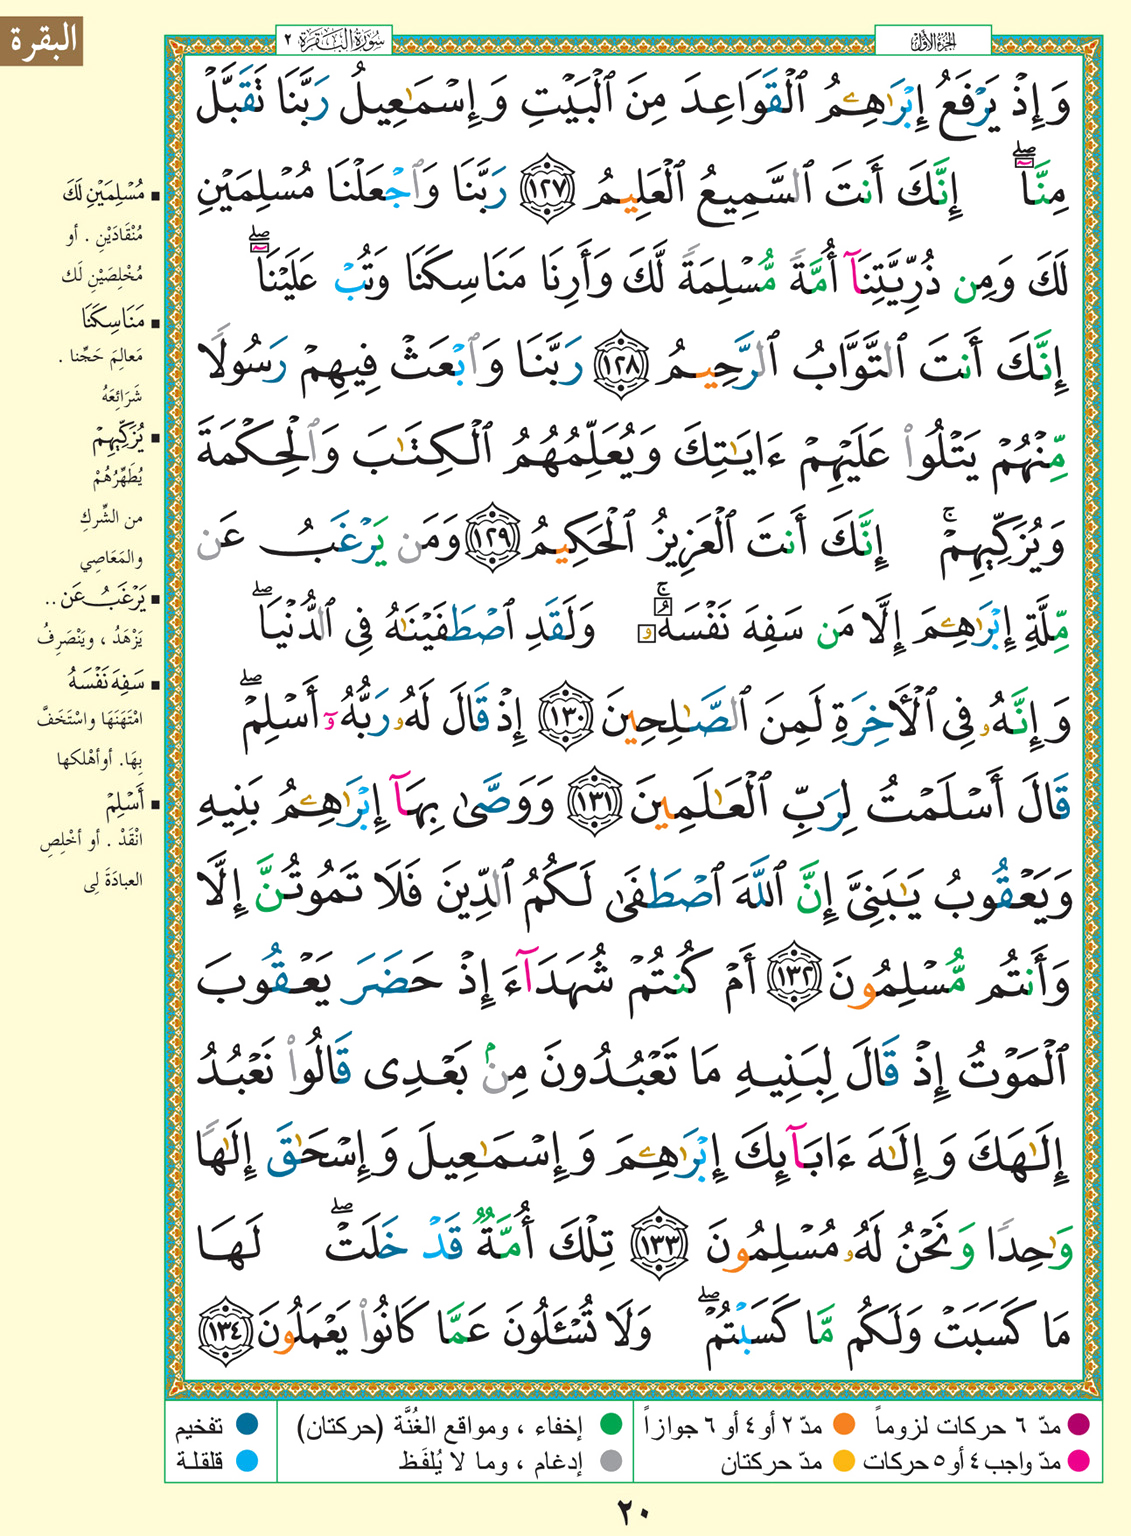 البقرة
سُورَةُ البَقَرَة ٢
الجزء الأول
وَإِذْ يَرْفَعُ إِبْرَٰهِـۧمُ ٱلْقَوَاعِدَ مِنَ ٱلْبَيْتِ وَإِسْمَٰعِيلُ رَبَّنَا تَقَبَّلْ
مِنَّآ ۖ إِنَّكَ أَنتَ ٱلسَّمِيعُ ٱلْعَلِيمُ ١٢٧ رَبَّنَا وَٱجْعَلْنَا مُسْلِمَيْنِ
لَكَ وَمِن ذُرِّيَّتِنَآ أُمَّةً مُّسْلِمَةً لَّكَ وَأَرِنَا مَنَاسِكَنَا وَتُبْ عَلَيْنَآ ۖ
إِنَّكَ أَنتَ ٱلتَّوَّابُ ٱلرَّحِيمُ ١٢٨ رَبَّنَا وَٱبْعَثْ فِيهِمْ رَسُولًا
مِّنْهُمْ يَتْلُوا۟ عَلَيْهِمْ ءَايَٰتِكَ وَيُعَلِّمُهُمُ ٱلْكِتَٰبَ وَٱلْحِكْمَةَ
وَيُزَكِّيهِمْ ۚ إِنَّكَ أَنتَ ٱلْعَزِيزُ ٱلْحَكِيمُ ١٢٩ وَمَن يَرْغَبُ عَن
مِّلَّةِ إِبْرَٰهِـۧمَ إِلَّا مَن سَفِهَ نَفْسَهُۥ ۚ وَلَقَدِ ٱصْطَفَيْنَٰهُ فِى ٱلدُّنْيَا ۖ
وَإِنَّهُۥ فِى ٱلْأَخِرَةِ لَمِنَ ٱلصَّٰلِحِينَ ١٣٠ إِذْ قَالَ لَهُۥ رَبُّهُۥٓ أَسْلِمْ ۖ
قَالَ أَسْلَمْتُ لِرَبِّ ٱلْعَٰلَمِينَ ١٣١ وَوَصَّىٰ بِهَآ إِبْرَٰهِـۧمُ بَنِيهِ
وَيَعْقُوبُ يَٰبَنِىَّ إِنَّ ٱللَّهَ ٱصْطَفَىٰ لَكُمُ ٱلدِّينَ فَلَا تَمُوتُنَّ إِلَّا
وَأَنتُم مُّسْلِمُونَ ١٣٢ أَمْ كُنتُمْ شُهَدَآءَ إِذْ حَضَرَ يَعْقُوبَ
ٱلْمَوْتُ إِذْ قَالَ لِبَنِيهِ مَا تَعْبُدُونَ مِنۢ بَعْدِى قَالُوا۟ نَعْبُدُ
إِلَٰهَكَ وَإِلَٰهَ ءَابَآئِكَ إِبْرَٰهِـۧمَ وَإِسْمَٰعِيلَ وَإِسْحَٰقَ إِلَٰهًا
وَٰحِدًا وَنَحْنُ لَهُۥ مُسْلِمُونَ ١٣٣ تِلْكَ أُمَّةٌ قَدْ خَلَتْ ۖ لَهَا
مَا كَسَبَتْ وَلَكُم مَّا كَسَبْتُمْ ۖ وَلَا تُسْـَٔلُونَ عَمَّا كَانُوا۟ يَعْمَلُونَ ١٣٤
▪ مُسْلِمَيْنِ لَكَ
مُنْقَادَيْنِ . أو
مُخْلِصَيْنِ لَكَ
▪ مَنَاسِكَنَا
مَعالِمَ حَجِّنا .
شَرَائِعَهُ
▪ يُزَكِّيهِمْ
يُطَهِّرُهُمْ
من الشِّركِ
والمَعَاصِي
▪ يَرْغَبُ عَن ..
يَزْهَدُ ، ويَنْصَرِفُ
▪ سَفِهَ نَفْسَهُ
امْتَهَنَهَا واسْتَخَفَّ
بِهَا. أو أهْلكها
▪ أَسْلِمْ
انْقَدْ . أو أخْلِصِ
العبادَةَ لِى
مدّ ٦ حركات لزوماً
مدّ ٢ أو ٤ أو ٦ جوازاً
إخفاء ، ومواقع الغُنَّة (حركتان)
تفخيم
مدّ واجب ٤ أو ٥ حركات
مدّ حركتان
إدغام ، وما لا يُلفَظ
قلقلة
٢٠